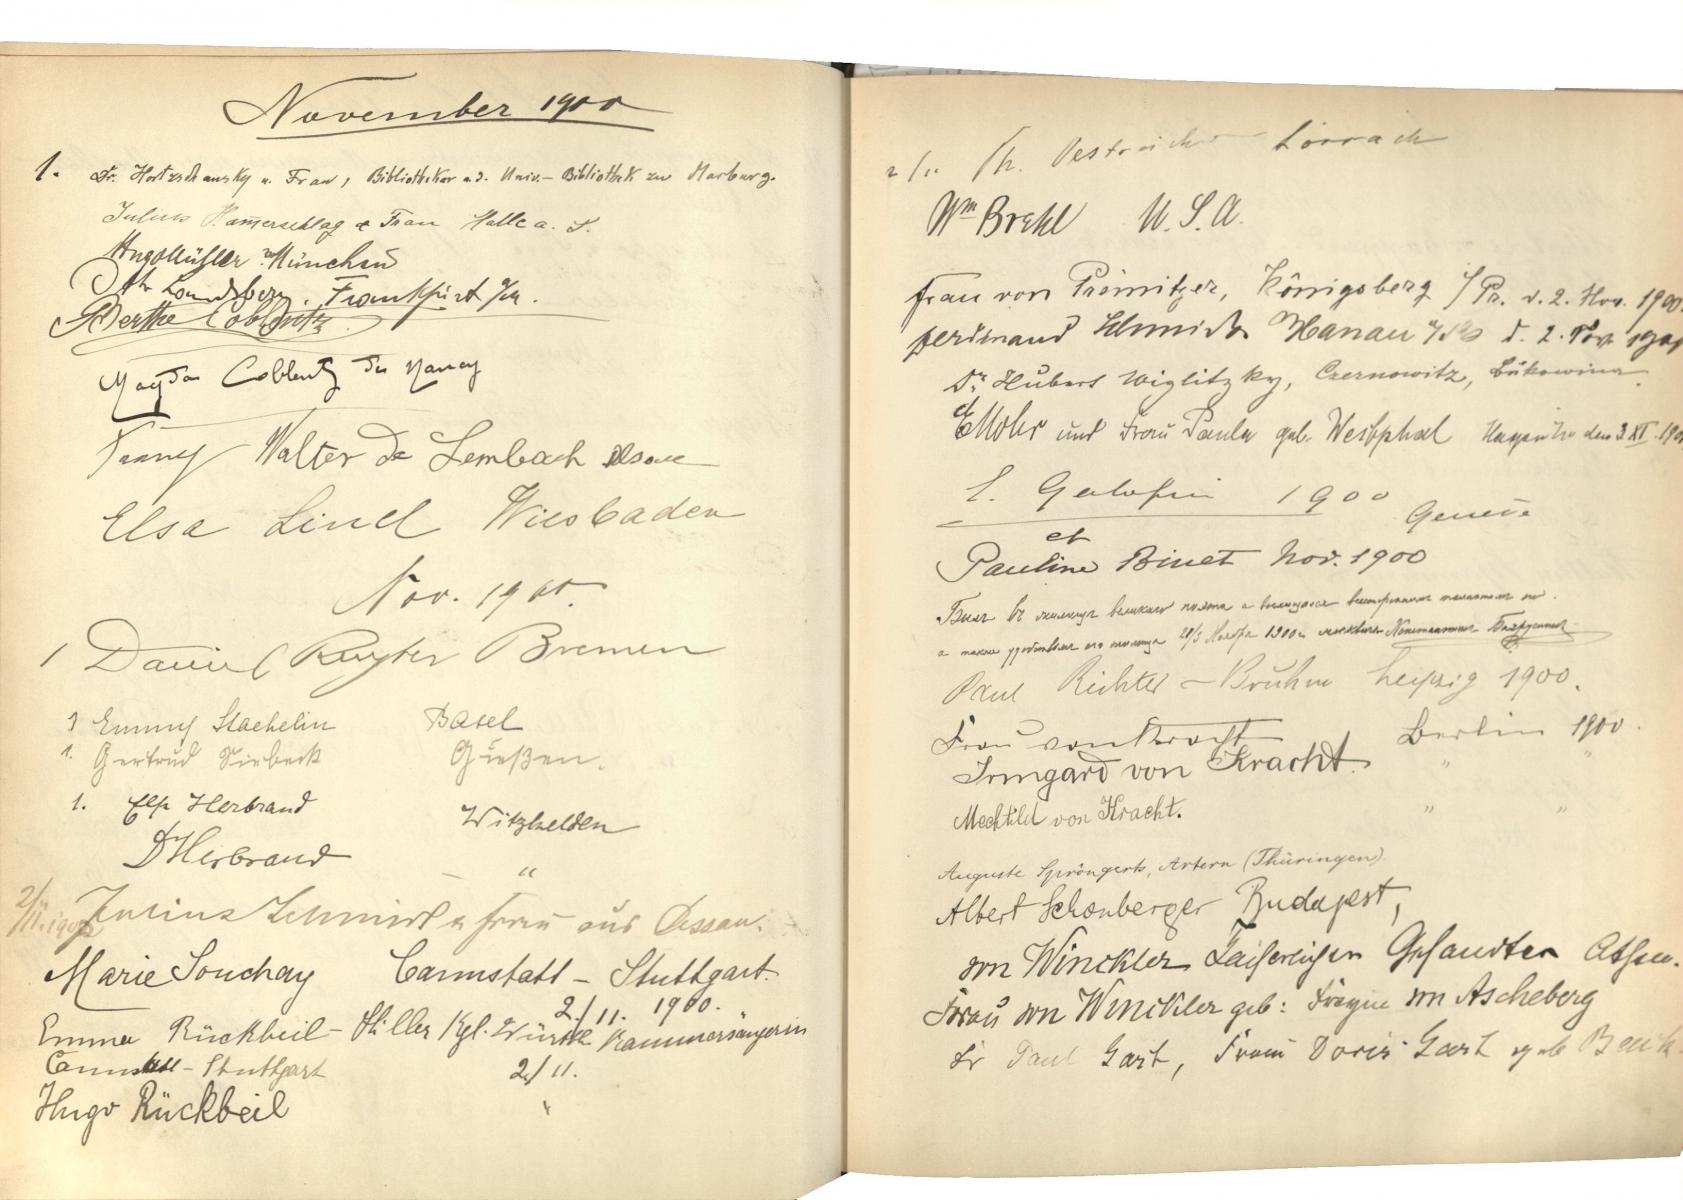 November 1900
1. Dr. Hortzschansky u. Frau, Bibliothekar a. d. Univ.- Bibliothek zu Marburg.
Julius Hamerschlag & Frau Halle a. S.
Hugo Müller München
Otto Landsberg. Frankfurt a/M.
Berthe Coblentz
Coblentz de Nancy
Fanny Walter de Lembach Alsace
Elsa Lindt Wiesbaden
Nov. 1900.
1 Daniel Ruyter Bremen
Emmy Staehelin Basel
1. Gertrud Siebeck Gießen.
1. Herbrand Witzhelden
D Herbrand "
2/11.1900 Julius Schmidt u Frau aus Dessau.
Marie Souchay Cannstatt - Stuttgart.
2./11. 1900.
Emma Rückbeil-Hiller Kgl. Württ Kammersängerin
Cannstatt - Stuttgart 2/11.
Hugo Rückbeil "
2/11. Fr. Oestreicher Lörrach
Wm Brehl U. S. A.
Frau von Königsberg i/Pr. d. 2. Nov. 1900.
Ferdinand Schmidt Hanau d. 2. Nov 1900
Dr. Hubert Wiglitzky, Czernowitz, Bukowina.
E Mohr und Frau Paula geb. Westphal den 3 XI. 1900
1900 Genève
et
Pauline Binet Nov. 1900
Былъ въ
1900
Paul Richter - Bruhm Leipzig 1900.
Frau von Kracht Berlin 1900.
Irmgard von Kracht. " "
Mechtild von Kracht. " "
Auguste Spröngerts, Artern (Thüringen)
Albert Schönberger Budapest,
von Winckler Kaiserlichen Gesandten Athen.
Frau von Winckler geb: Freyin von Ascheberg
Dr Paul Gast, Frau Doris Gast geb Beuck